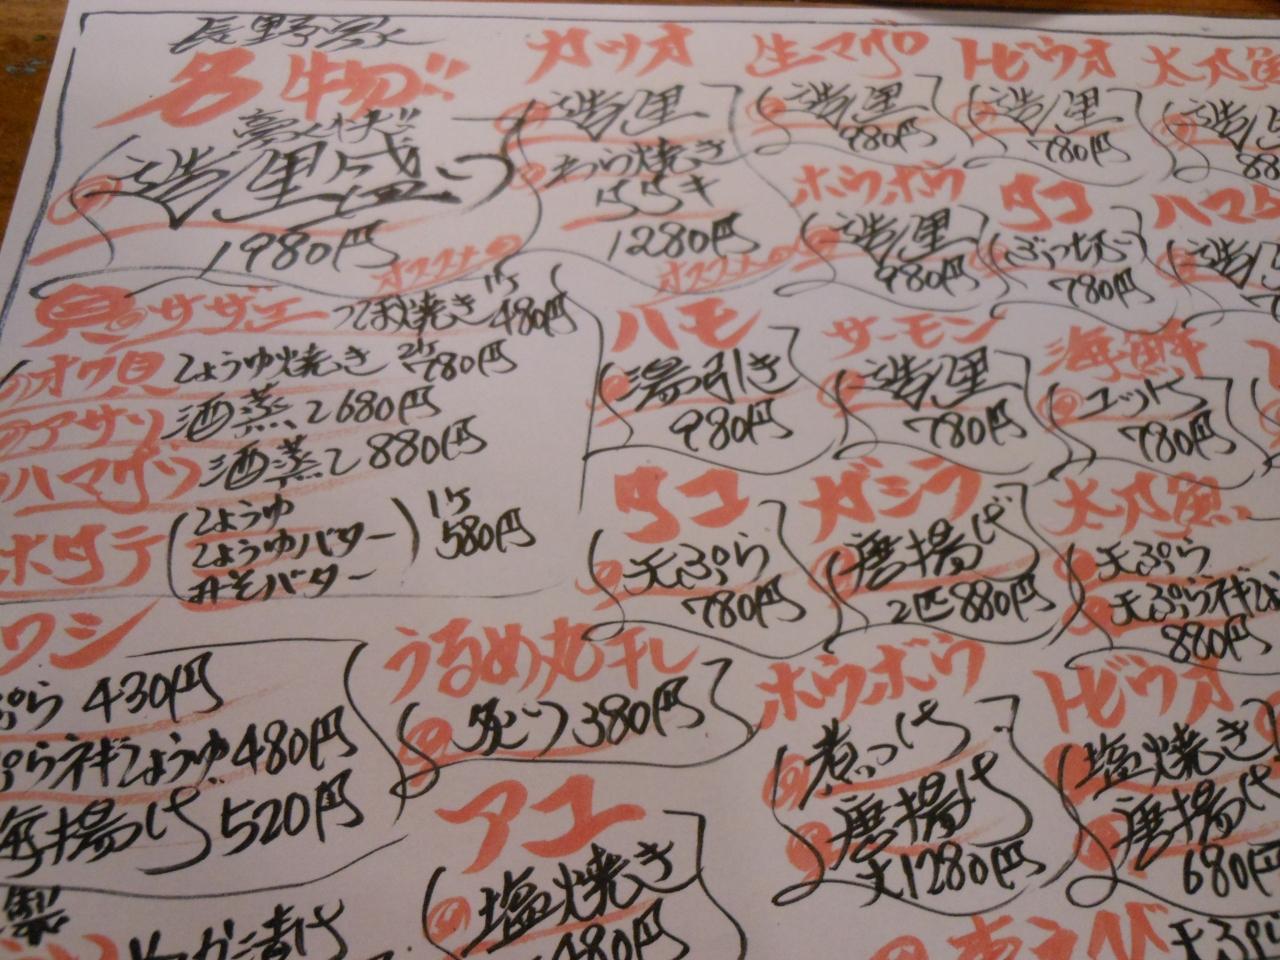 長野家
名物!!
豪快!!
造里盛り
1980円
オススメの
カツオ
造里
たたき
1280円
オススメの
生マグロ
造里
980円
トビウオ
造里
780円
太刀魚
造り
ホウボウ
造里
980円
タコ
ぶつ切り
780円
貝の サザエ つぼ焼き 1ケ 480円
オオ貝 しょうゆ焼き 2ケ 780円
アサリ 酒蒸し 680円
ハマグリ 酒蒸し 880円
ホタテ
しょうゆ
しょうゆバター
みそバター
1ケ
580円
ハモ
湯引き
980円
サーモン
造里
780円
海鮮
ユッケ
780円
タコ
天ぷら
780円
ガシラ
唐揚げ
2匹 880円
太刀魚
天ぷら
天ぷらネギしょ
880円
ワシ
ぷら 430円
ぷらネギしょうゆ 480円
揚げ 520円
うるめ丸干し
炙り 380円
ホウボウ
煮つけ
唐揚げ
大1280円
トビウオ
塩焼き
唐揚げ
680円
アユ
塩焼き
480円
赤えび 天ぷら